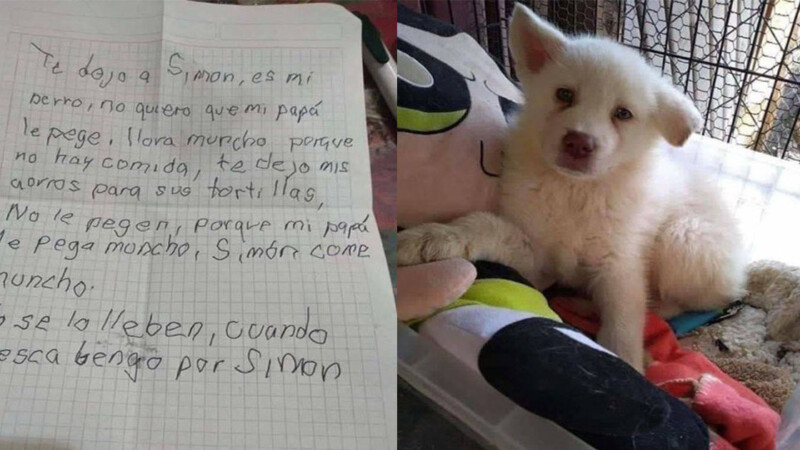 Te dejo a Simon, es mi
perro, no quiero que mi papá
le pege, llora muncho porque
no hay comida, te dejo mis
aorros para sus tortillas,
No le pegen, porque mi papá
le pega muncho, Simón come
muncho.
se lo lleben, cuando
esca bengo por Simon